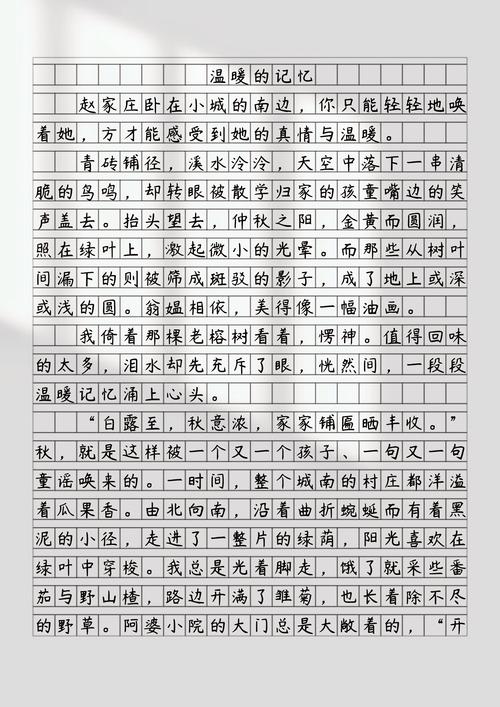 温暖的记忆
赵家庄卧在小城的南边，你只能轻轻地唤
着她，方才能感受到她的真情与温暖。
青砖铺径，溪水泠泠，天空中落下一串清
脆的鸟鸣，却转眼被散学归家的孩童嘴边的笑
声盖去。抬头望去，仲秋之阳，金黄而圆润，
照在绿叶上，激起微小的光晕。而那些从树叶
间漏下的则被筛成斑驳的影子，成了地上或深
或浅的圆。翁媪相依，美得像一幅油画。
我倚着那棵老榕树看着，愣神。值得回味
的太多，泪水却先充斥了眼，恍然间，一段段
温暖记忆涌上心头。
“白露至，秋意浓，家家铺匾晒丰收。”
秋，就是这样被一个又一个孩子、一句又一句
童谣唤来的。一时间，整个城南的村庄都洋溢
着瓜果香。由北向南，沿着曲折蜿蜒而有着黑
泥的小径，走进了一整片的绿荫，阳光喜欢在
绿叶中穿梭。我总是光着脚走，饿了就采些番
茄与野山楂，路边开满了雏菊，也长着除不尽
的野草。阿婆小院的大门总是大敞着的，“开